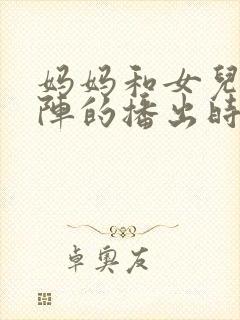 妈妈和女兒
陣的播出時
卓奧友